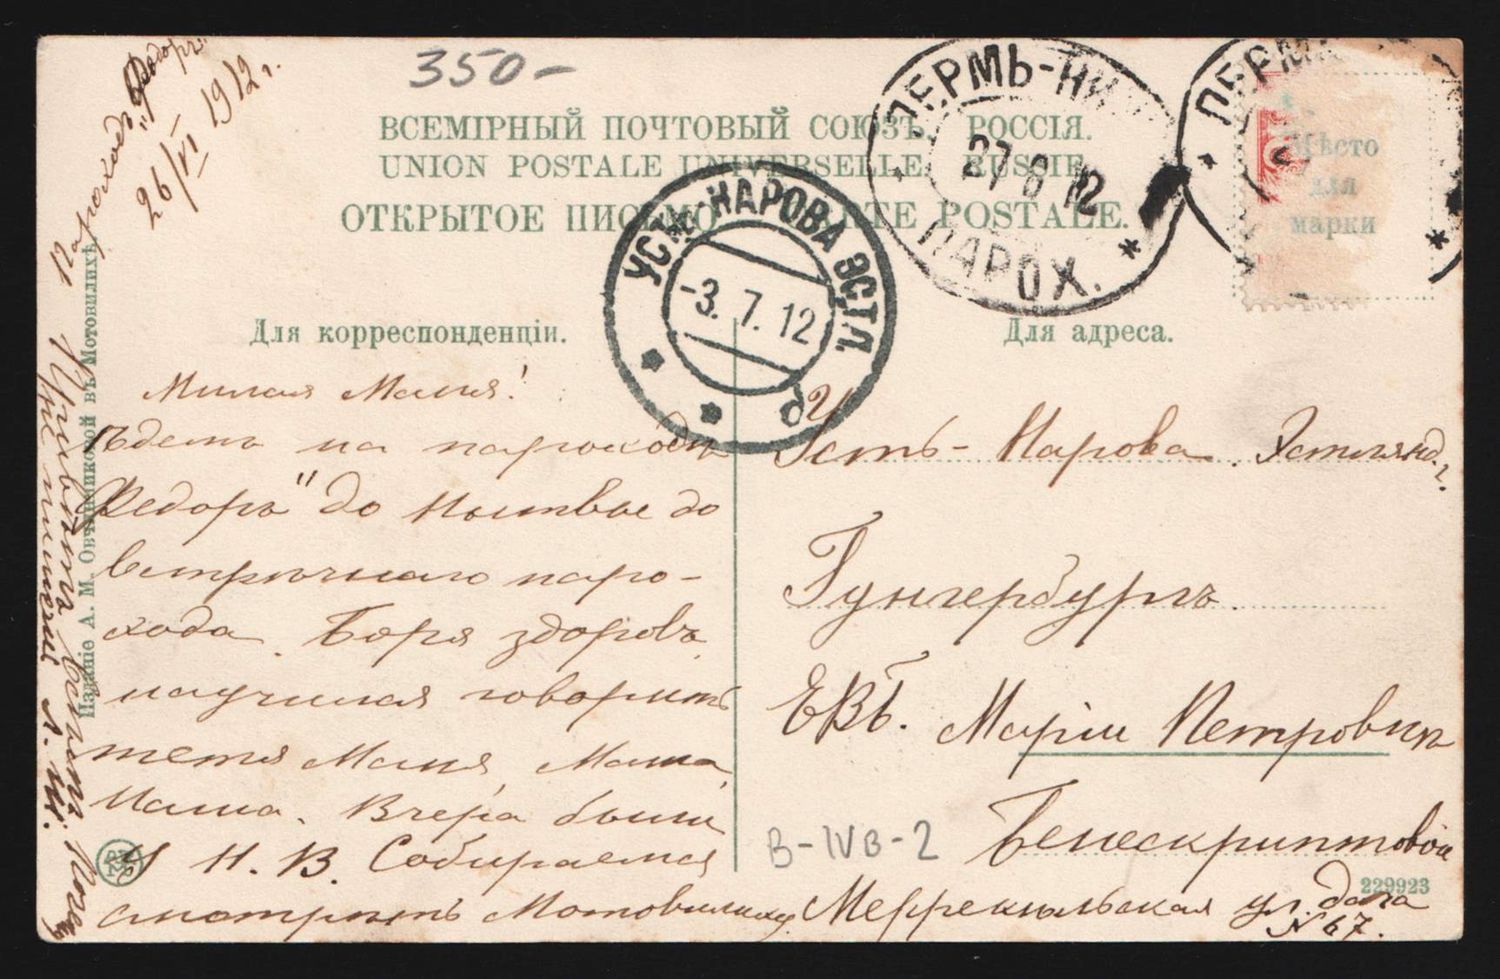 350-
пароходъ „Ѳедоръ"
26/VI 1912 г.
ВСЕМІРНЫЙ ПОЧТОВЫЙ СОЮЗЪ. РОССІЯ.
UNION POSTALE UNIVERSELLE. RUSSIE.
ОТКРЫТОЕ ПИСЬМО CARTE POSTALE.
ПЕРМЬ-НИЖ
27 6 12
ПАРОХ.
ПЕРМ
Мѣсто
для
марки
УСТЬ-НАРОВА ЭСТЛ.
-3.7.12
Для корреспонденціи.
Для адреса.
Милая Маня!
ѣдемъ на пароходѣ
Ѳедоръ" до Нытвы до
встрѣчнаго паро-
хода. Боря здоровъ,
научился говорить
тетя Маня, Маша,
Наша. Вчера были
у Н. В. Собираемся
смотрѣть Мотовилиху.
Привѣтъ
Усть-Нарова Эстлянд. г.
Гунгербургъ.
ЕВБ. Маріи Петровнѣ
Бенескриптовой
Меррекюльская ул. дача
№ 67.
В-IVВ-2
229923
Изданіе А. М. Овчинниковой въ Мотовилихѣ